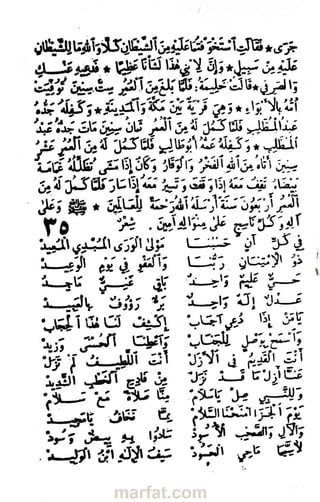 جَرٰى ٭ فَقَالَتْ اَسْتَخَوَّفْتُمَا عَلَيْهِ مِنَ الشَّيْطَانِ كَلَّا وَاللهِ مَا لِلشَّيْطَانِ
عَلَيْهِ مِنْ سَبِيْلٍ ٭ وَاِنَّ لِاِبْنِيْ هٰذَا لَشَأْنًا عَظِيْمًا ٭ فَدَعِيْهِ عَنْكِ
وَانْصَرِفِيْ ٭ قَالَتْ حَلِيْمَةُ ، فَلَمَّا بَلَغَ مِنَ الْعُمُرِ سِتَّ سِنِيْنَ تُوُفِّيَتْ
اُمُّهُ بِالْاَبْوَاءِ ٭ وَهِيَ قَرْيَةٌ بَيْنَ مَكَّةَ وَالْمَدِيْنَةِ ٭ وَكَفِلَهُ جَدُّهُ
عَبْدُ الْمُطَّلِبِ ٭ فَلَمَّا كَمُلَ لَهُ مِنَ الْعُمُرِ ثَمَانُ سِنِيْنَ مَاتَ جَدُّهُ عَبْدُ
الْمُطَّلِبِ ٭ وَكَفِلَهُ عَمُّهُ اَبُوْ طَالِبٍ ٭ فَلَمَّا كَمُلَ لَهُ مِنَ الْعُمُرِ عَشْرُ
سِنِيْنَ اَتَاهُ مِنَ اللهِ الْفَخْرُ وَالْوَقَارُ وَكَانَ اِذَا مَشٰى تُظَلِّلُهُ غَمَامَةٌ
بَيْضَاءُ تَقِفُ مَعَهُ اِذَا وَقَفَ وَتَسِيْرُ مَعَهُ اِذَا سَارَ ٭ فَلَمَّا كَمُلَ لَهُ مِنَ
الْعُمُرِ اَرْبَعُوْنَ سَنَةً اَرْسَلَهُ اللهُ رَحْمَةً لِّلْعَالَمِيْنَ ٭ ﷺ وَعَلٰى
اٰلِهِ وَكُلِّ نَاسِجٍ عَلٰى مِنْوَالِهِ اٰمِيْنَ . شِعْرٌ ٣٥
فِيْ كُلِّ اٰنٍ حَسْبُنَا مَوْلَى الْوَرَى الْمُبْدِي الْمُعِيْدْ
ذُو الْاِمْتِنَانِ رَبُّنَا وَالْعَفْوِ فِيْ يَوْمِ الْوَعِيْدْ
حَيٌّ عَلِيْمٌ وَاجِدٌ بَاقٍ غَنِيٌّ مَاجِدٌ
عَدْلٌ اِلٰهٌ وَاحِدٌ بَرٌّ رَؤُوْفٌ بِالْعَبِيْدْ
يَا مَنْ اِذَا دُعِيَ اَجَابْ اِكْشِفْ لَنَا هٰذَا الْحِجَابْ
وَاسْمَحْ بِوَصْلٍ لِلْجَنَابْ وَاعْطِنَا الْحُسْنٰى وَزِيْدْ
اَنْتَ الْقَدِيْمُ فِي الْاَزَلْ اَنْتَ اللَّطِيْفُ لَمْ تَزَلْ
عَنَّا اَزِلْ مَا قَدْ نَزَلْ مِنْ فَادِحِ الْخَطْبِ الشَّدِيْدْ
وَلِلنَّبِيْ صِلْ يَا سَلَامْ مِنَّا صَلَاةً مَعْ سَلَامْ
يَوْمَ الْجَزَا امْنَحْنَا السَّلَامْ مِمَّا نَخَافُ يَا مَجِيْدْ
وَالْاٰلِ وَالصَّحْبِ الْاُسُوْدْ سَادُوْا بِهِ بِيْضٌ وَسُوْدْ
لَاسِيَّمَا مَاحِي الْحَسُوْدْ سَيْفُ الْاِلٰهِ ابْنُ الْوَلِيْدْ
marfat.com